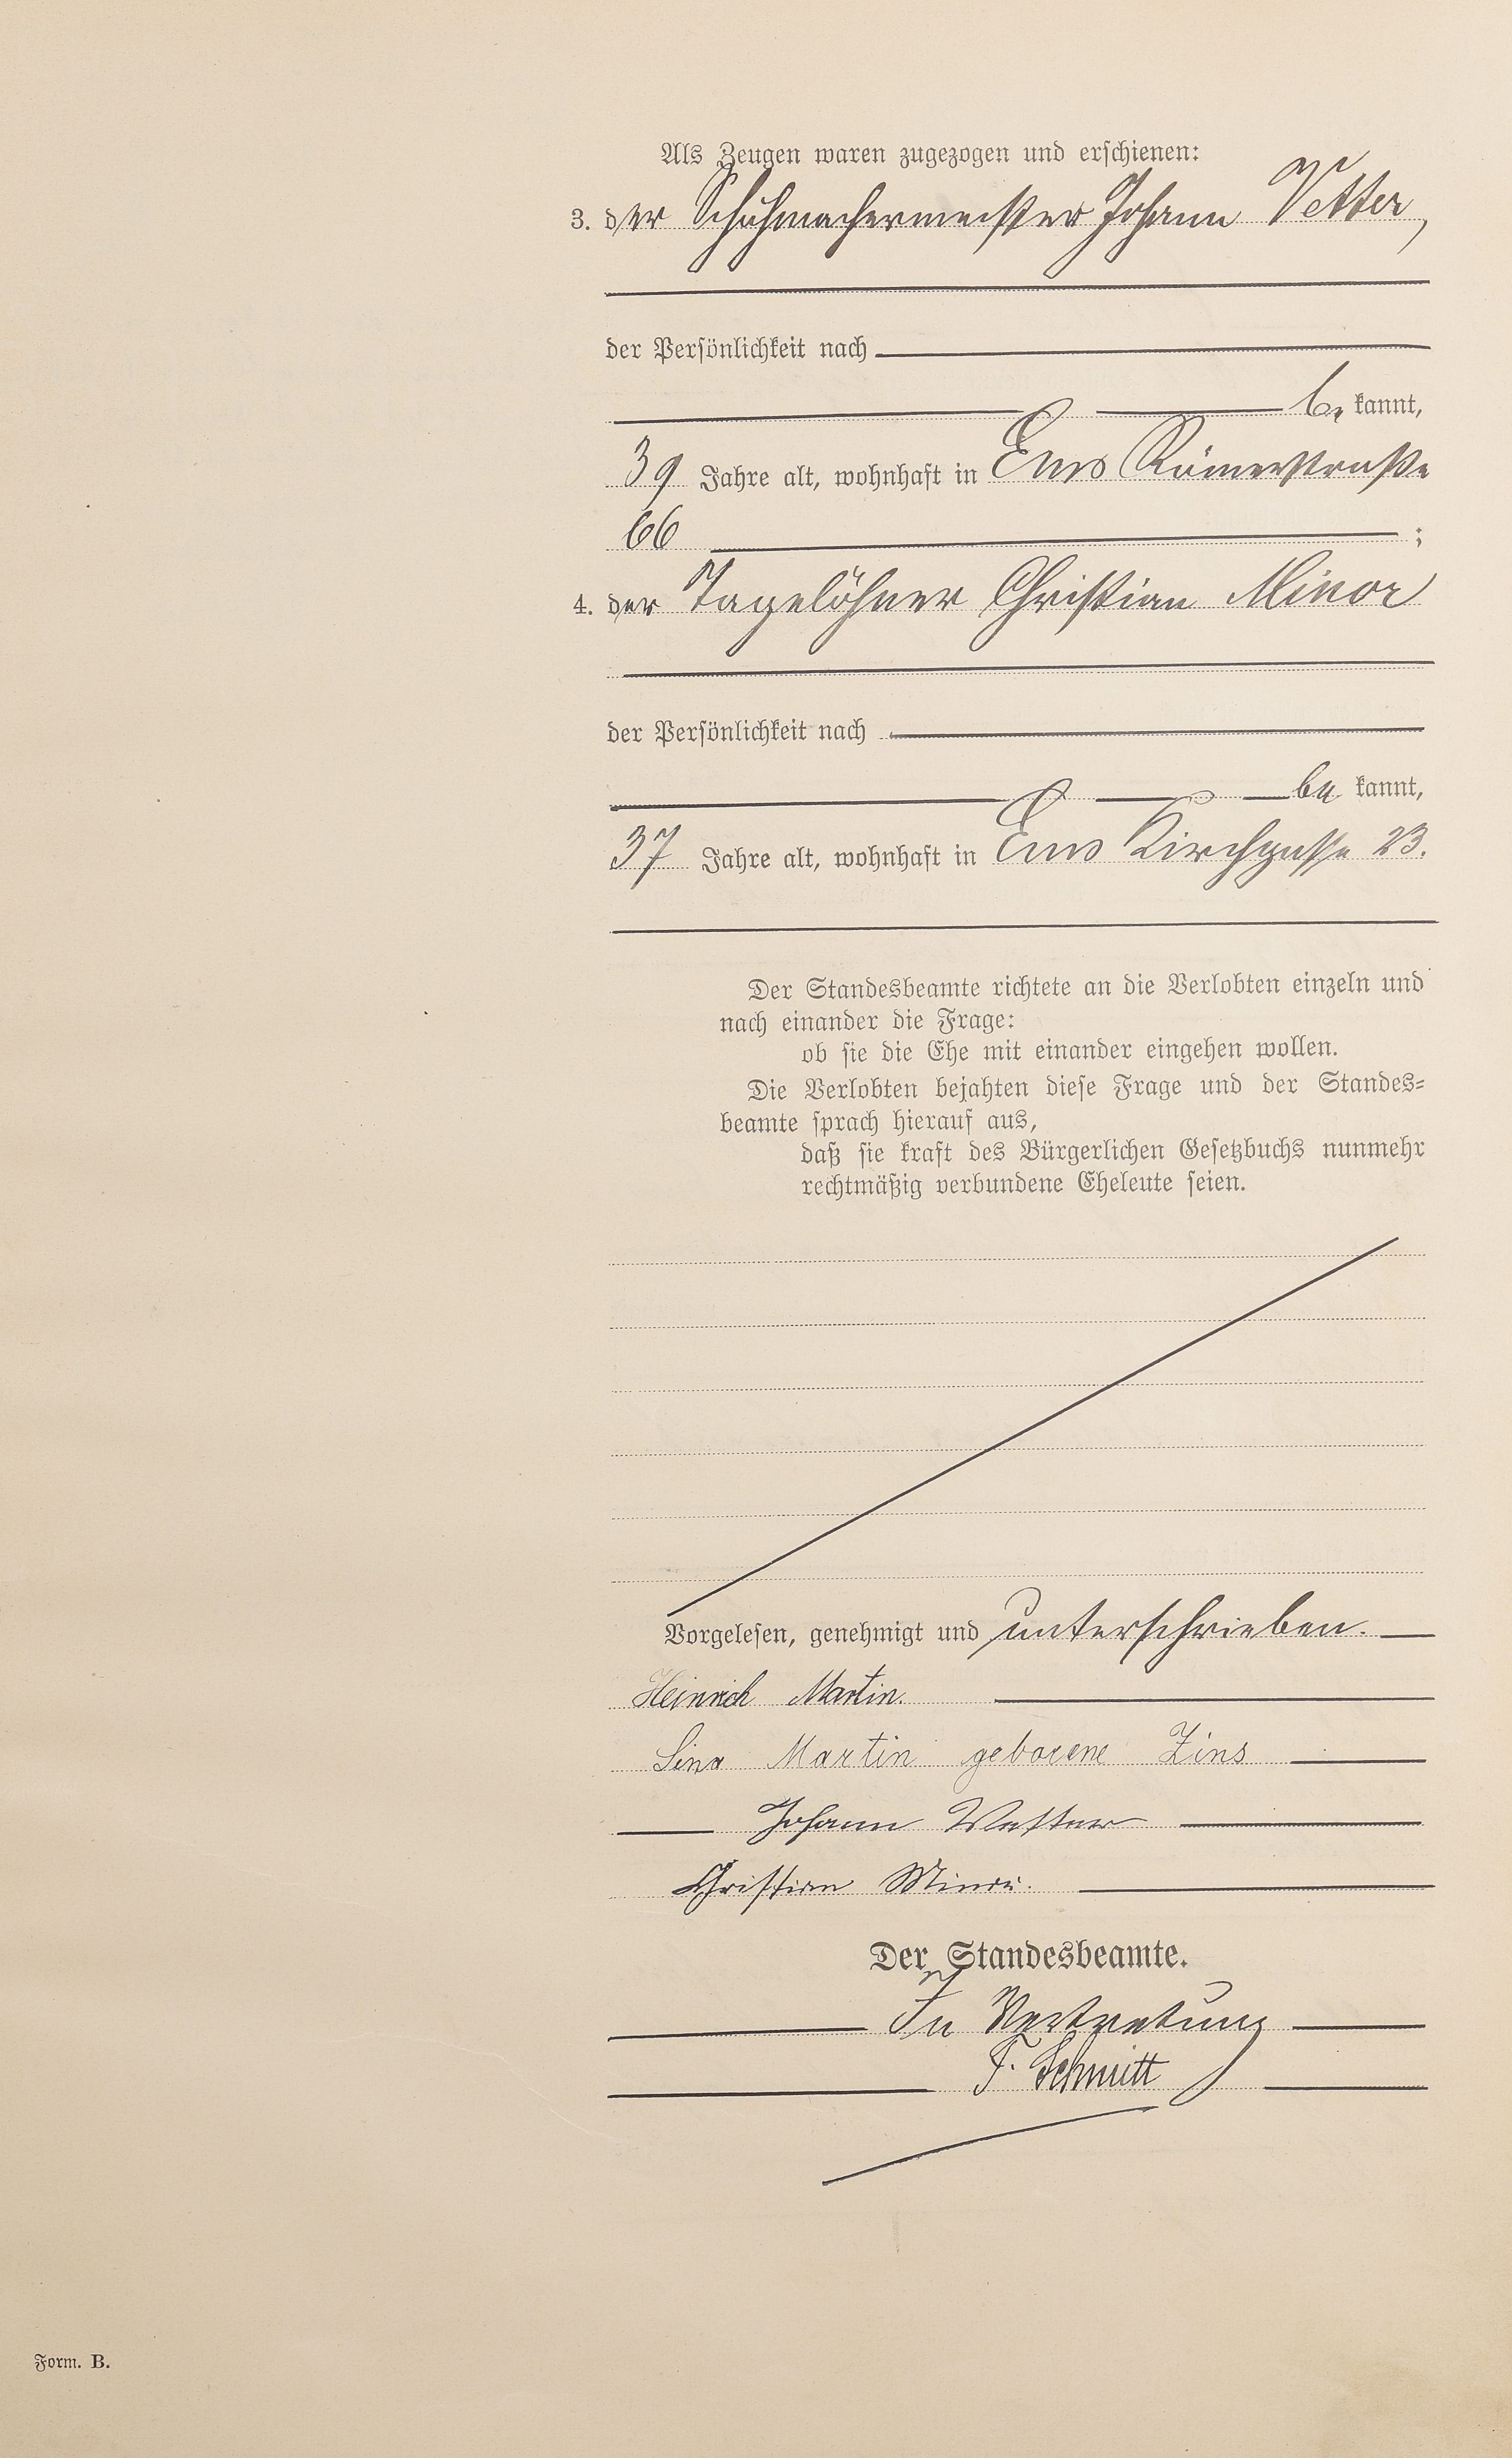 Als Zeugen waren zugezogen und erschienen:
3. der Schuhmachermeister Johann Vetter,
der Persönlichkeit nach
be kannt,
39 Jahre alt, wohnhaft in Ems Römerstraße
66 ;
4. der Tagelöhner Christian Minor
der Persönlichkeit nach
be kannt,
37 Jahre alt, wohnhaft in Ems Kirchgasse 23.
Der Standesbeamte richtete an die Verlobten einzeln und
nach einander die Frage:
ob sie die Ehe mit einander eingehen wollen.
Die Verlobten bejahten diese Frage und der Standes-
beamte sprach hierauf aus,
daß sie kraft des Bürgerlichen Gesetzbuchs nunmehr
rechtmäßig verbundene Eheleute seien.
Vorgelesen, genehmigt und unterschrieben.
Heinrich Martin.
Lina Martin geborene Zins
Johann Vetter
Christian Minor.
Der Standesbeamte.
In Vertretung
F. Schmitt
Form. B.